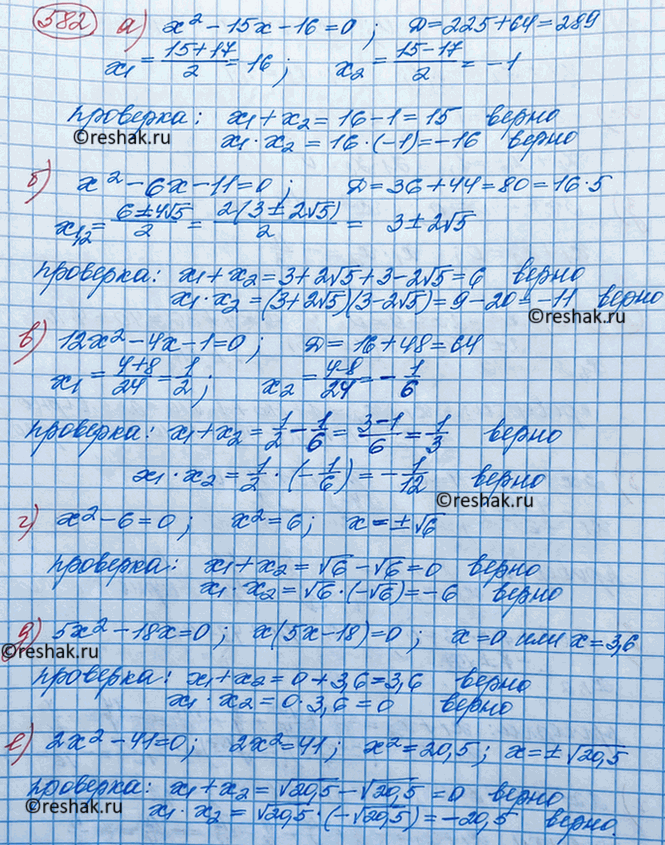 582 а) x² - 15x - 16 = 0; Д = 225 + 64 = 289
x₁ = (15+17)/2 = 16; x₂ = (15-17)/2 = -1
проверка: x₁ + x₂ = 16 - 1 = 15 верно
©reshak.ru
x₁ · x₂ = 16 · (-1) = -16 верно
©reshak.ru
б) x² - 6x - 11 = 0; Д = 36 + 44 = 80 = 16·5
x₁,₂ = (6±4√5)/2 = 2(3±2√5)/2 = 3 ± 2√5
проверка: x₁ + x₂ = 3 + 2√5 + 3 - 2√5 = 6 верно
x₁ · x₂ = (3+2√5)(3-2√5) = 9 - 20 = -11 верно
©reshak.ru
в) 12x² - 4x - 1 = 0; Д = 16 + 48 = 64
x₁ = (4+8)/24 = 1/2; x₂ = (4-8)/24 = -1/6
©reshak.ru
проверка: x₁ + x₂ = 1/2 - 1/6 = (3-1)/6 = 1/3 верно
x₁ · x₂ = 1/2 · (-1/6) = -1/12 верно
©reshak.ru
г) x² - 6 = 0; x² = 6; x = ±√6
проверка: x₁ + x₂ = √6 - √6 = 0 верно
x₁ · x₂ = √6 · (-√6) = -6 верно
©reshak.ru
д) 5x² - 18x = 0; x(5x - 18) = 0; x = 0 или x = 3,6
©reshak.ru
проверка: x₁ + x₂ = 0 + 3,6 = 3,6 верно
x₁ · x₂ = 0 · 3,6 = 0 верно
©reshak.ru
е) 2x² - 41 = 0; 2x² = 41; x² = 20,5; x = ±√20,5
©reshak.ru
проверка: x₁ + x₂ = √20,5 - √20,5 = 0 верно
x₁ · x₂ = √20,5 · (-√20,5) = -20,5 верно.